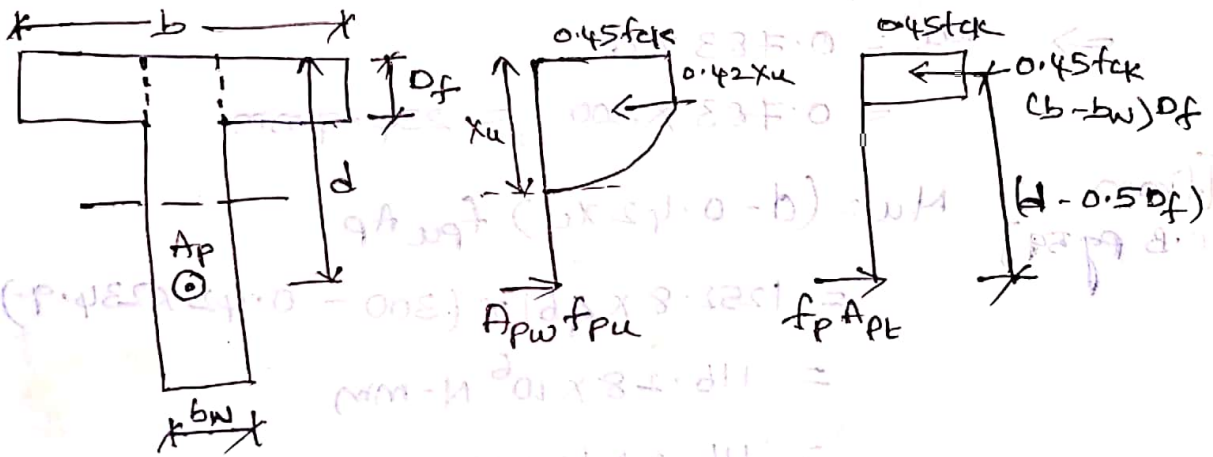 b
Df
d
Ap
bw
0.45fck
0.42xu
xu
Apw fpu
0.45fck
0.45fck
(b-bw)Df
(d-0.5Df)
fp Apt